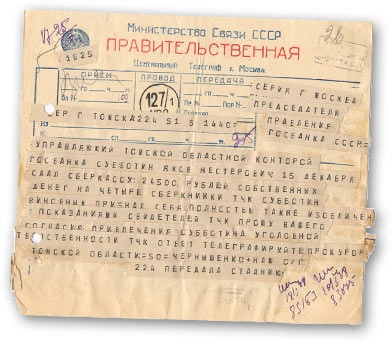 17-25
МИНИСТЕРСТВО СВЯЗИ СССР
26
ПРАВИТЕЛЬСТВЕННАЯ
1625
ЦЕНТРАЛЬНЫЙ ТЕЛЕГРАФ г. МОСКВА
ПРИЕМ ПРОВОД ПЕРЕДАЧА
127/1
СЕРИЯ Г МОСКВА
ПРЕДСЕДАТЕЛЮ
ПРАВЛЕНИЯ
ГОСБАНКА СССР=
СЕР Г ТОМСКА 224 51 5 1440=
УПРАВЛЯЮЩИЙ ТОМСКОЙ ОБЛАСТНОЙ КОНТОРОЙ
ГОСБАНКА СУББОТИН ЯКОВ НЕСТЕРОВИЧ 15 ДЕКАБРЯ
СДАЛ СБЕРКАССУ 24500 РУБЛЕЙ СОБСТВЕННЫХ
ДЕНЕГ НА ЧЕТЫРЕ СБЕРКНИЖКИ ТЧК СУББОТИН
ВИНОВНЫМ ПРИЗНАЛ СЕБЯ ПОЛНОСТЬЮ ТАКЖЕ ИЗОБЛИЧЕН
ПОКАЗАНИЯМИ СВИДЕТЕЛЕЙ ТЧК ПРОШУ ВАШЕГО
СОГЛАСИЯ ПРИВЛЕЧЕНИЯ СУББОТИНА УГОЛОВНОЙ
ОТВЕТСТВЕННОСТИ ТЧК ОТВЕТ ТЕЛЕГРАФИРУЙТЕ ПРОКУРОР
ТОМСКОЙ ОБЛАСТИ=50= ЧЕРНЫШЕНКО+НАШ С/Г
224 ПЕРЕДАЛА СТАДНИК